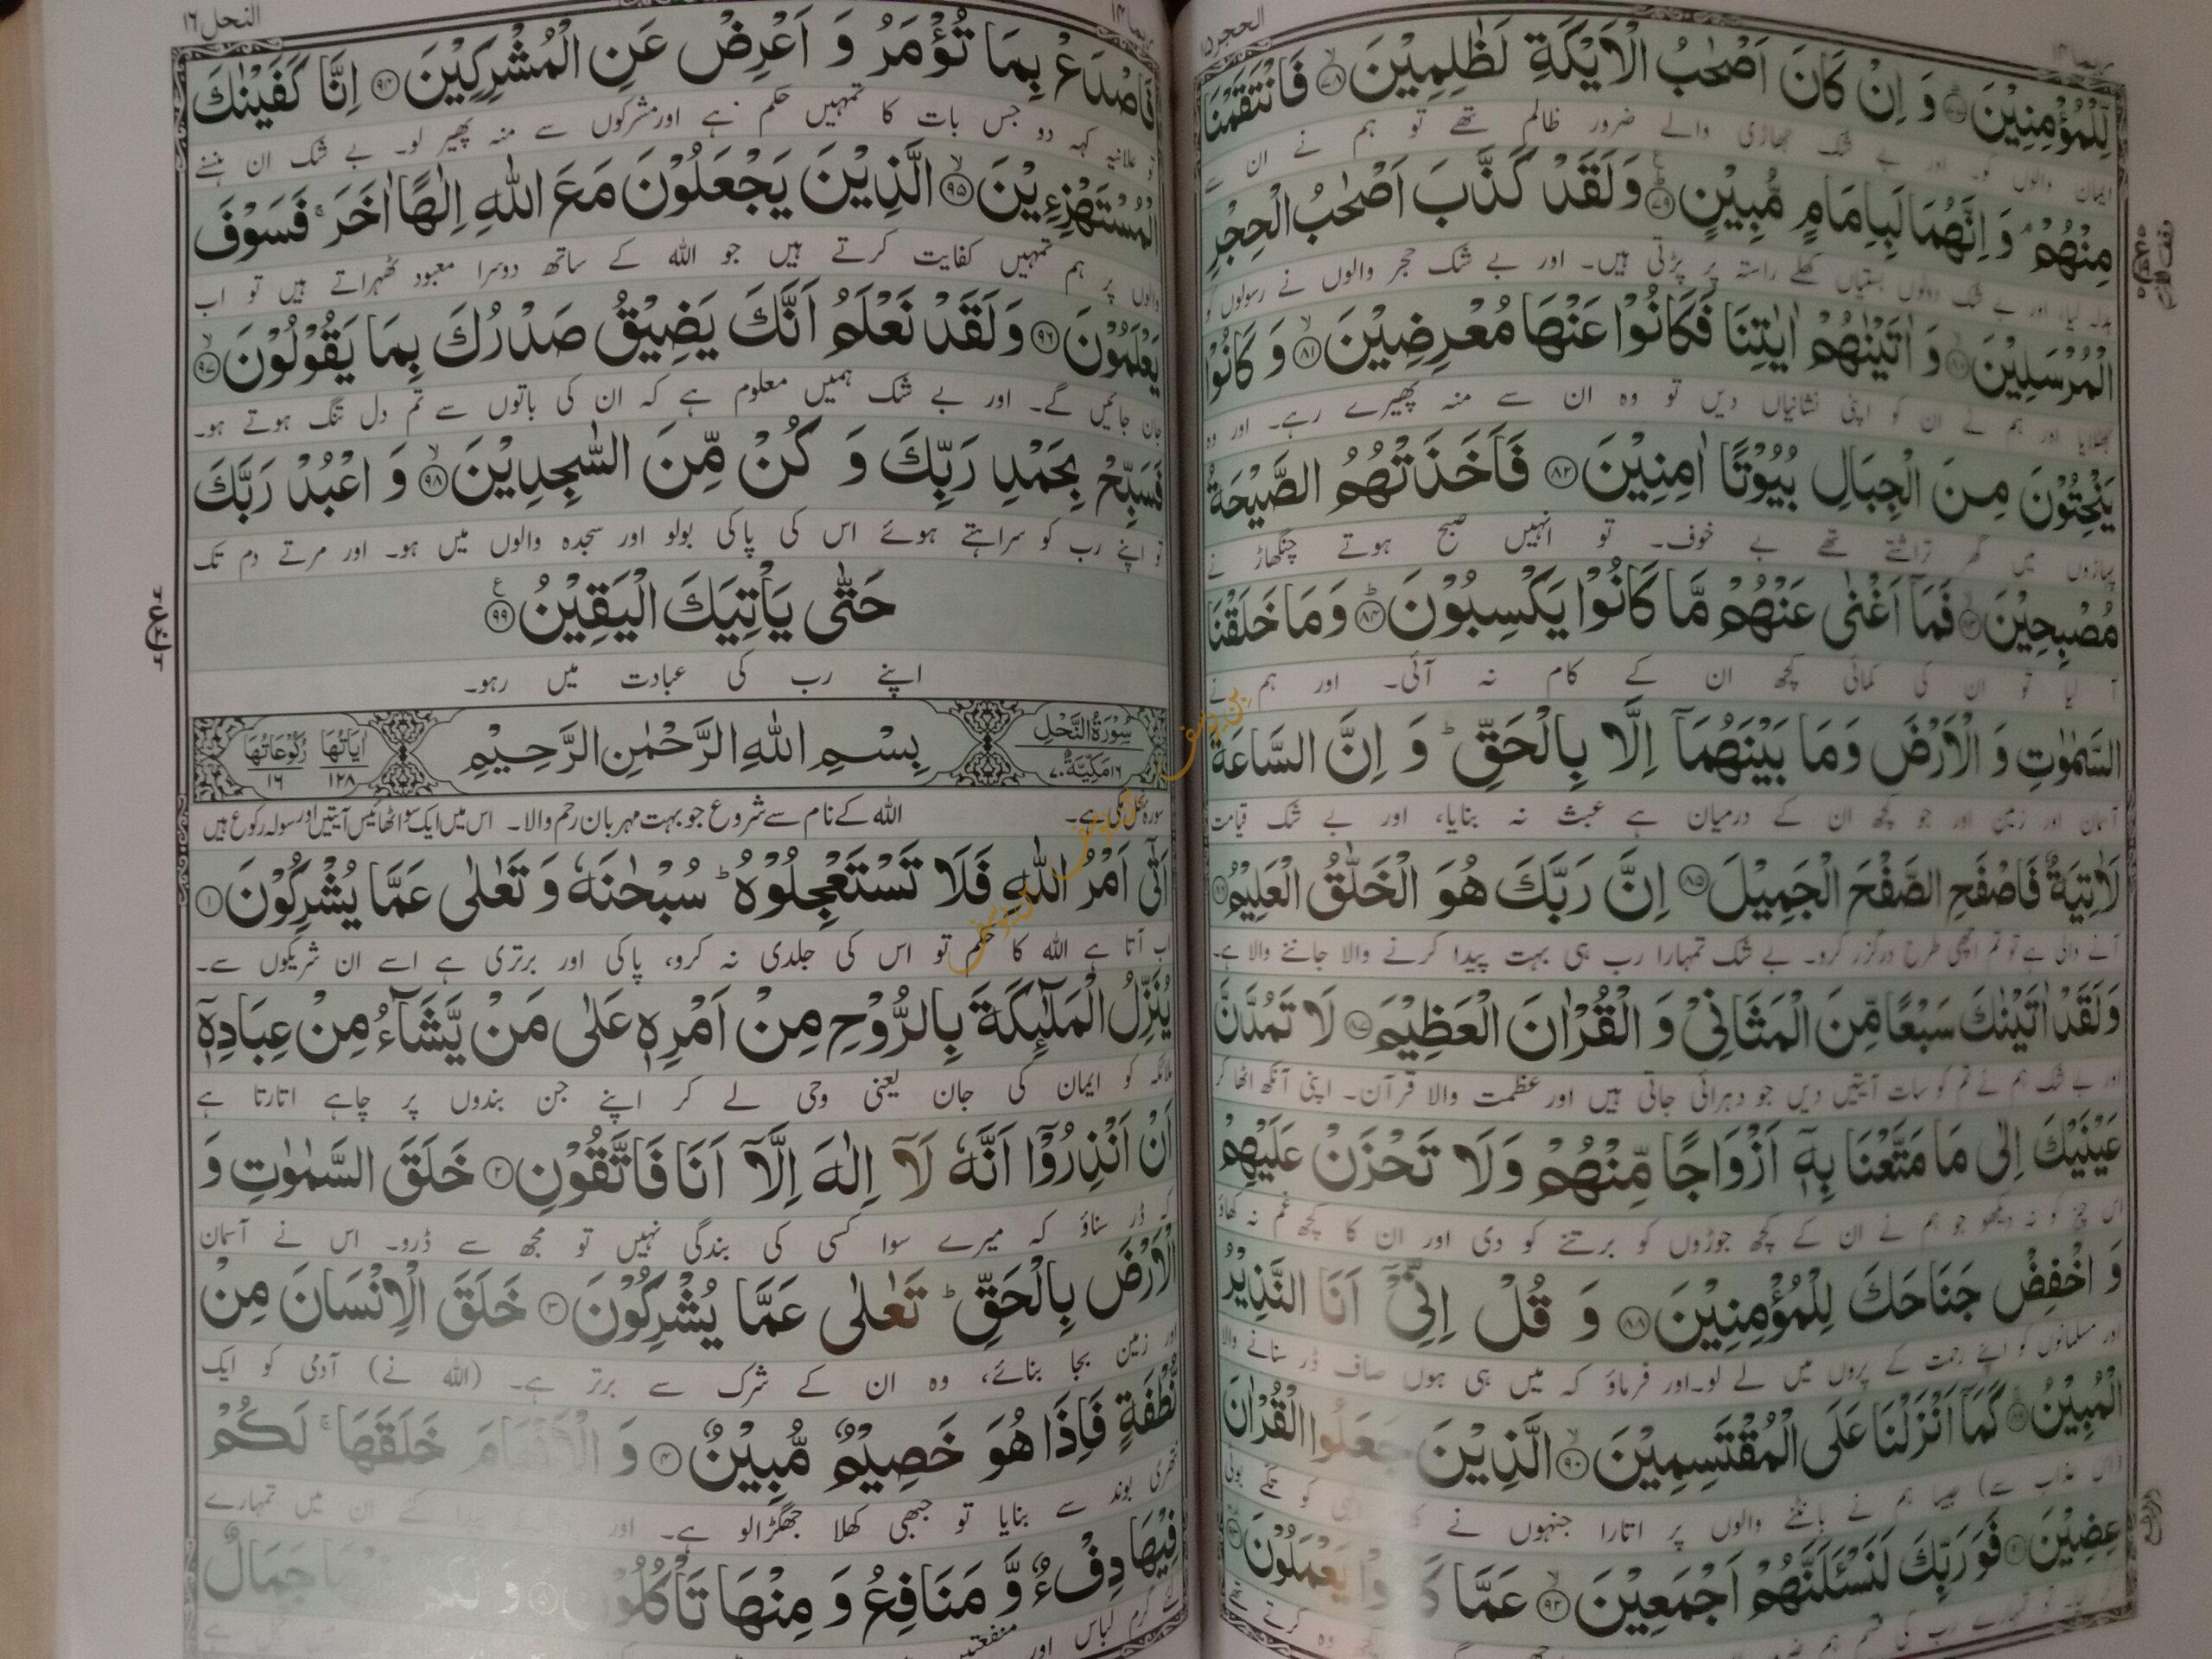 الحجر۱۵
لِّلْمُؤْمِنِیْنَ وَ اِنْ كَانَ اَصْحٰبُ الْاَیْكَةِ لَظٰلِمِیْنَ ﴿۷۸﴾ فَانْتَقَمْنَا
ایمان والوں کو۔ اور بے شک جھاڑی والے ضرور ظالم تھے تو ہم نے ان سے
مِنْهُمْ ۘ وَ اِنَّهُمَا لَبِاِمَامٍ مُّبِیْنٍ ﴿۷۹﴾ وَلَقَدْ كَذَّبَ اَصْحٰبُ الْحِجْرِ
بدلہ لیا، اور بے شک دونوں بستیاں کھلے راستہ پر پڑتی ہیں۔ اور بے شک حجر والوں نے رسولوں کو
الْمُرْسَلِیْنَ ﴿۸۰﴾ وَ اٰتَیْنٰهُمْ اٰیٰتِنَا فَكَانُوْا عَنْهَا مُعْرِضِیْنَ ﴿۸۱﴾ وَ كَانُوْا
جھٹلایا اور ہم نے ان کو اپنی نشانیاں دیں تو وہ ان سے منہ پھیرے رہے۔ اور وہ
یَنْحِتُوْنَ مِنَ الْجِبَالِ بُیُوْتًا اٰمِنِیْنَ ﴿۸۲﴾ فَاَخَذَتْهُمُ الصَّیْحَةُ
پہاڑوں میں گھر تراشتے تھے بے خوف۔ تو انہیں صبح ہوتے چنگھاڑ نے
مُصْبِحِیْنَ ﴿۸۳﴾ فَمَاۤ اَغْنٰی عَنْهُمْ مَّا كَانُوْا یَكْسِبُوْنَ ﴿۸۴﴾ وَمَا خَلَقْنَا
آ لیا تو ان کی کمائی کچھ ان کے کام نہ آئی۔ اور ہم نے
السَّمٰوٰتِ وَ الْاَرْضَ وَمَا بَیْنَهُمَاۤ اِلَّا بِالْحَقِّ ؕ وَ اِنَّ السَّاعَةَ
آسمان اور زمین اور جو کچھ ان کے درمیان ہے عبث نہ بنایا، اور بے شک قیامت
لَاٰتِیَةٌ فَاصْفَحِ الصَّفْحَ الْجَمِیْلَ ﴿۸۵﴾ اِنَّ رَبَّكَ هُوَ الْخَلّٰقُ الْعَلِیْمُ ﴿۸۶﴾
آنے والی ہے تو تم اچھی طرح درگزر کرو۔ بے شک تمہارا رب ہی بہت پیدا کرنے والا جاننے والا ہے۔
وَلَقَدْ اٰتَیْنٰكَ سَبْعًا مِّنَ الْمَثَانِیْ وَ الْقُرْاٰنَ الْعَظِیْمَ ﴿۸۷﴾ لَا تَمُدَّنَّ
اور بے شک ہم نے تم کو سات آیتیں دیں جو دہرائی جاتی ہیں اور عظمت والا قرآن۔ اپنی آنکھ اٹھا کر
عَیْنَیْكَ اِلٰی مَا مَتَّعْنَا بِهٖۤ اَزْوَاجًا مِّنْهُمْ وَلَا تَحْزَنْ عَلَیْهِمْ
اس چیز کو نہ دیکھو جو ہم نے ان کے کچھ جوڑوں کو برتنے کو دی اور ان کا کچھ غم نہ کھاؤ
وَ اخْفِضْ جَنَاحَكَ لِلْمُؤْمِنِیْنَ ﴿۸۸﴾ وَ قُلْ اِنِّیْۤ اَنَا النَّذِیْرُ
اور مسلمانوں کو اپنے رحمت کے پروں میں لے لو۔ اور فرماؤ کہ میں ہی ہوں صاف ڈر سنانے والا
الْمُبِیْنُ ﴿۸۹﴾ كَمَاۤ اَنْزَلْنَا عَلَی الْمُقْتَسِمِیْنَ ﴿۹۰﴾ الَّذِیْنَ جَعَلُوا الْقُرْاٰنَ
(اس عذاب سے) جیسا ہم نے بانٹنے والوں پر اتارا جنہوں نے کو تکے بوٹی
عِضِیْنَ ﴿۹۱﴾ فَوَرَبِّكَ لَنَسْـَٔلَنَّهُمْ اَجْمَعِیْنَ ﴿۹۲﴾ عَمَّا یَعْمَلُوْنَ
النحل۱۶
فَاصْدَعْ بِمَا تُؤْمَرُ وَ اَعْرِضْ عَنِ الْمُشْرِكِیْنَ ﴿۹۴﴾ اِنَّا كَفَیْنٰكَ
تو علانیہ کہہ دو جس بات کا تمہیں حکم ہے اور مشرکوں سے منہ پھیر لو۔ بے شک ان ہنسنے
الْمُسْتَهْزِءِیْنَ ﴿۹۵﴾ الَّذِیْنَ یَجْعَلُوْنَ مَعَ اللّٰهِ اِلٰهًا اٰخَرَ ۚ فَسَوْفَ
والوں پر ہم تمہیں کفایت کرتے ہیں جو اللہ کے ساتھ دوسرا معبود ٹھہراتے ہیں تو اب
یَعْلَمُوْنَ ﴿۹۶﴾ وَلَقَدْ نَعْلَمُ اَنَّكَ یَضِیْقُ صَدْرُكَ بِمَا یَقُوْلُوْنَ ﴿۹۷﴾
جان جائیں گے۔ اور بے شک ہمیں معلوم ہے کہ ان کی باتوں سے تم دل تنگ ہوتے ہو۔
فَسَبِّحْ بِحَمْدِ رَبِّكَ وَ كُنْ مِّنَ السّٰجِدِیْنَ ﴿۹۸﴾ وَ اعْبُدْ رَبَّكَ
تو اپنے رب کو سراہتے ہوئے اس کی پاکی بولو اور سجدہ والوں میں ہو۔ اور مرتے دم تک
حَتّٰی یَاْتِیَكَ الْیَقِیْنُ ﴿۹۹﴾
اپنے رب کی عبادت میں رہو۔
سُوْرَةُ النَّحْلِ ۱۶ مَكِّیَّةٌ ۷۰ بِسْمِ اللّٰهِ الرَّحْمٰنِ الرَّحِیْمِ اٰیَاتُهَا ۱۲۸ رُكُوْعَاتُهَا ۱۶
سورہ نحل مکی ہے۔ اللہ کے نام سے شروع جو بہت مہربان رحم والا۔ اس میں ایک سو اٹھائیس آیتیں اور سولہ رکوع ہیں
اَتٰۤی اَمْرُ اللّٰهِ فَلَا تَسْتَعْجِلُوْهُ ؕ سُبْحٰنَهٗ وَ تَعٰلٰی عَمَّا یُشْرِكُوْنَ ﴿۱﴾
اب آتا ہے اللہ کا حکم تو اس کی جلدی نہ کرو، پاکی اور برتری ہے اسے ان شریکوں سے۔
یُنَزِّلُ الْمَلٰٓىِٕكَةَ بِالرُّوْحِ مِنْ اَمْرِهٖ عَلٰی مَنْ یَّشَآءُ مِنْ عِبَادِهٖۤ
ملائکہ کو ایمان کی جان یعنی وحی لے کر اپنے جن بندوں پر چاہے اتارتا ہے
اَنْ اَنْذِرُوْۤا اَنَّهٗ لَاۤ اِلٰهَ اِلَّاۤ اَنَا فَاتَّقُوْنِ ﴿۲﴾ خَلَقَ السَّمٰوٰتِ وَ
کہ ڈر سناؤ کہ میرے سوا کسی کی بندگی نہیں تو مجھ سے ڈرو۔ اس نے آسمان
الْاَرْضَ بِالْحَقِّ ؕ تَعٰلٰی عَمَّا یُشْرِكُوْنَ ﴿۳﴾ خَلَقَ الْاِنْسَانَ مِنْ
اور زمین بجا بنائے، وہ ان کے شرک سے برتر ہے۔ (اللہ نے) آدمی کو ایک
نُّطْفَةٍ فَاِذَا هُوَ خَصِیْمٌ مُّبِیْنٌ ﴿۴﴾ وَ الْاَنْعَامَ خَلَقَهَا ۚ لَكُمْ
نتھری بوند سے بنایا تو جبھی کھلا جھگڑالو ہے۔ اور ان میں تمہارے
فِیْهَا دِفْءٌ وَّ مَنَافِعُ وَ مِنْهَا تَاْكُلُوْنَ ﴿۵﴾ وَ جَمَالٌ
لئے گرم لباس اور منفعتیں